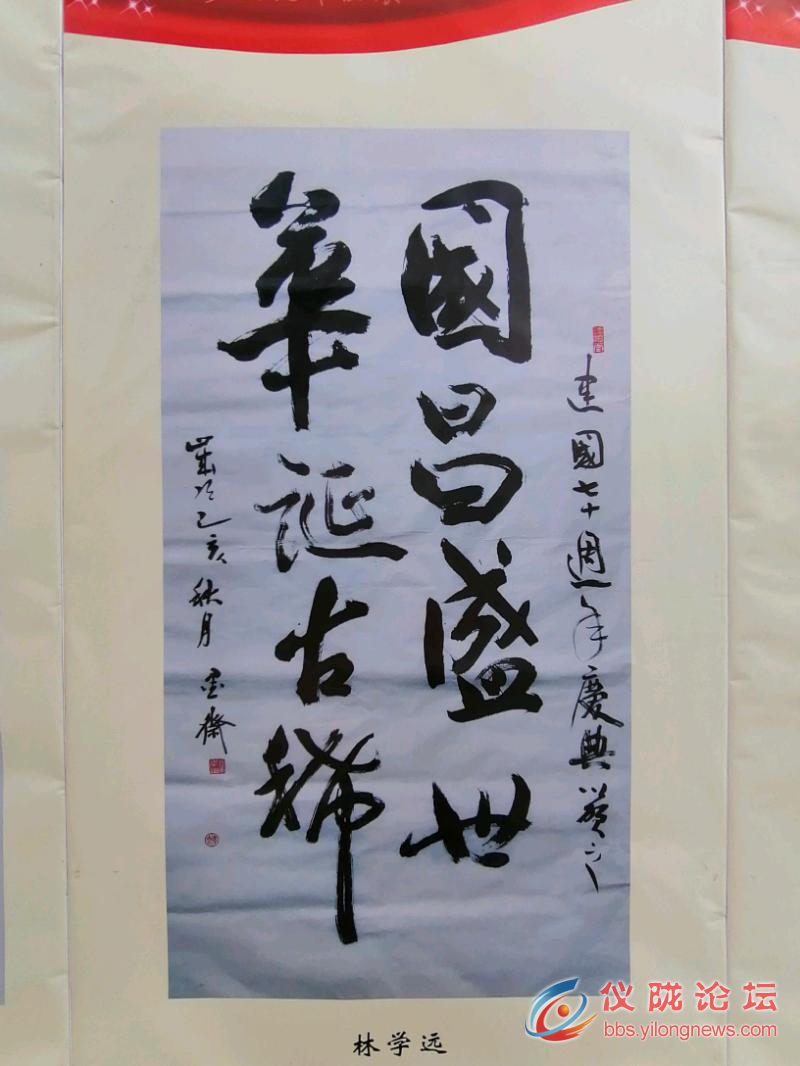 建國七十週年慶典
國昌盛世
華誕古稀
歲次己亥秋月
林学远
仪陇论坛
bbs.yilongnews.com